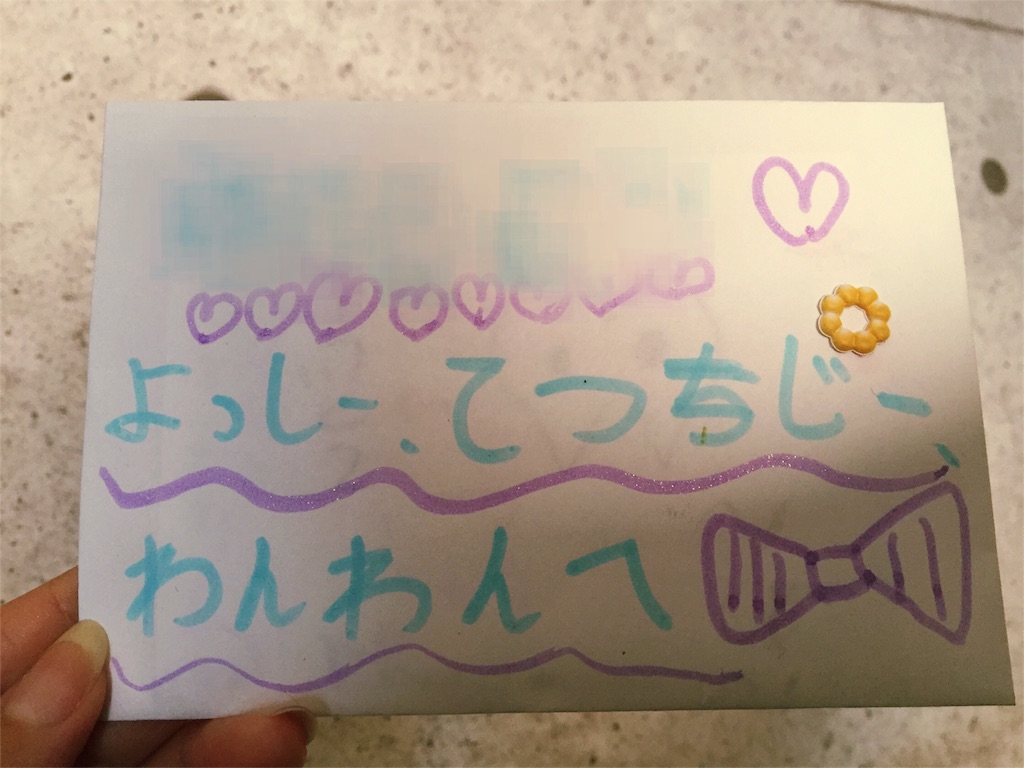 よっしー、てつちじー、
わんわんへ